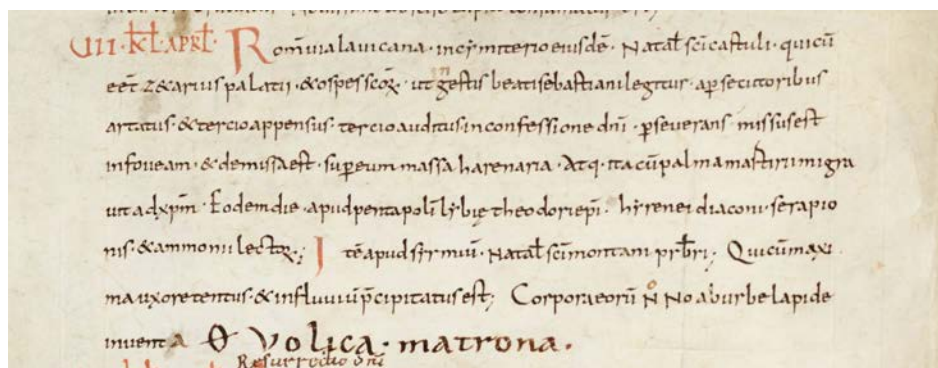 UII · kl̄ · APRL̄ · Rom̄ uia lauicana · in cẏmiterio eiusdē · Natal̄ sc̄i castuli · qui cū
eēt z&arius palatii · & ospes scōꝝ · ut in gestis beati sebastiani legitur · a ꝑsecutoribus
artatus · & tercio appensus · tercio auditus in confessione dn̄i · ꝑseuerans missus est
in foueam · & demissa est · suꝑ eum massa harenaria · Atq · ita cū palma martirii migra
uit ad xp̄m · Eodem die · apud pentapolī lẏbię theodori ep̄i · hẏrenei diaconi · serapio
nis · & ammonii lectoꝝ · ; Itē apud sẏrmiū · Natal̄ sc̄i montani pr̄bri ; Qui cū maxi
ma uxore tentus · & in fluuiū p̄cipitatus est ; Corpora eorū N̊ No ab urbe lapide
inuenta Θ Volica · matrona ·
Resurrectio dn̄i